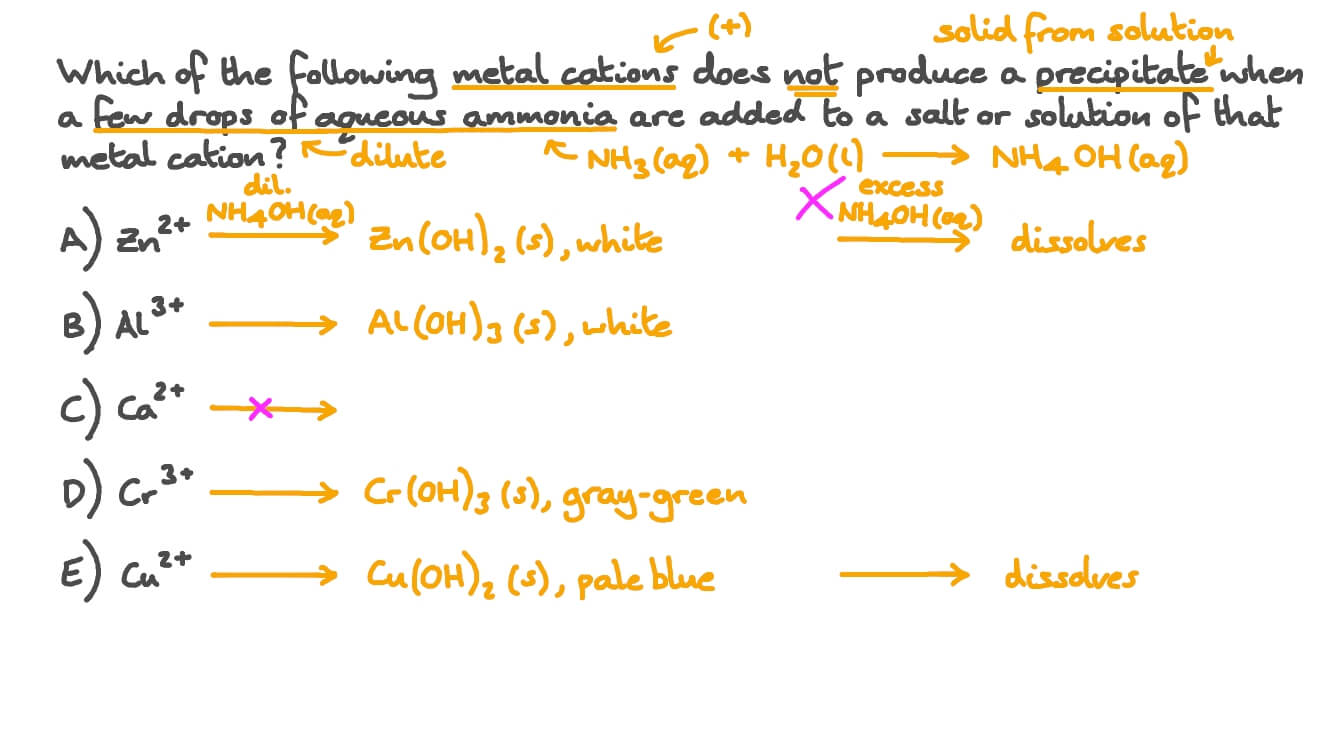 (+)
solid from solution
Which of the following metal cations does not produce a precipitate when
a few drops of aqueous ammonia are added to a salt or solution of that
metal cation? dilute NH₃(aq) + H₂O(l) ⟶ NH₄OH(aq)
dil. NH₄OH(aq)
excess NH₄OH(aq)
A) Zn²⁺ ⟶ Zn(OH)₂(s), white ⟶ dissolves
B) Al³⁺ ⟶ Al(OH)₃(s), white
C) Ca²⁺ ⟶
D) Cr³⁺ ⟶ Cr(OH)₃(s), gray-green
E) Cu²⁺ ⟶ Cu(OH)₂(s), pale blue ⟶ dissolves